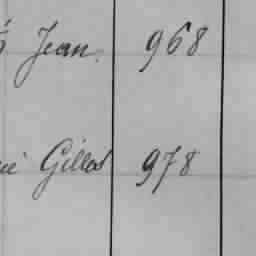 Jean. 968
Gillot 978